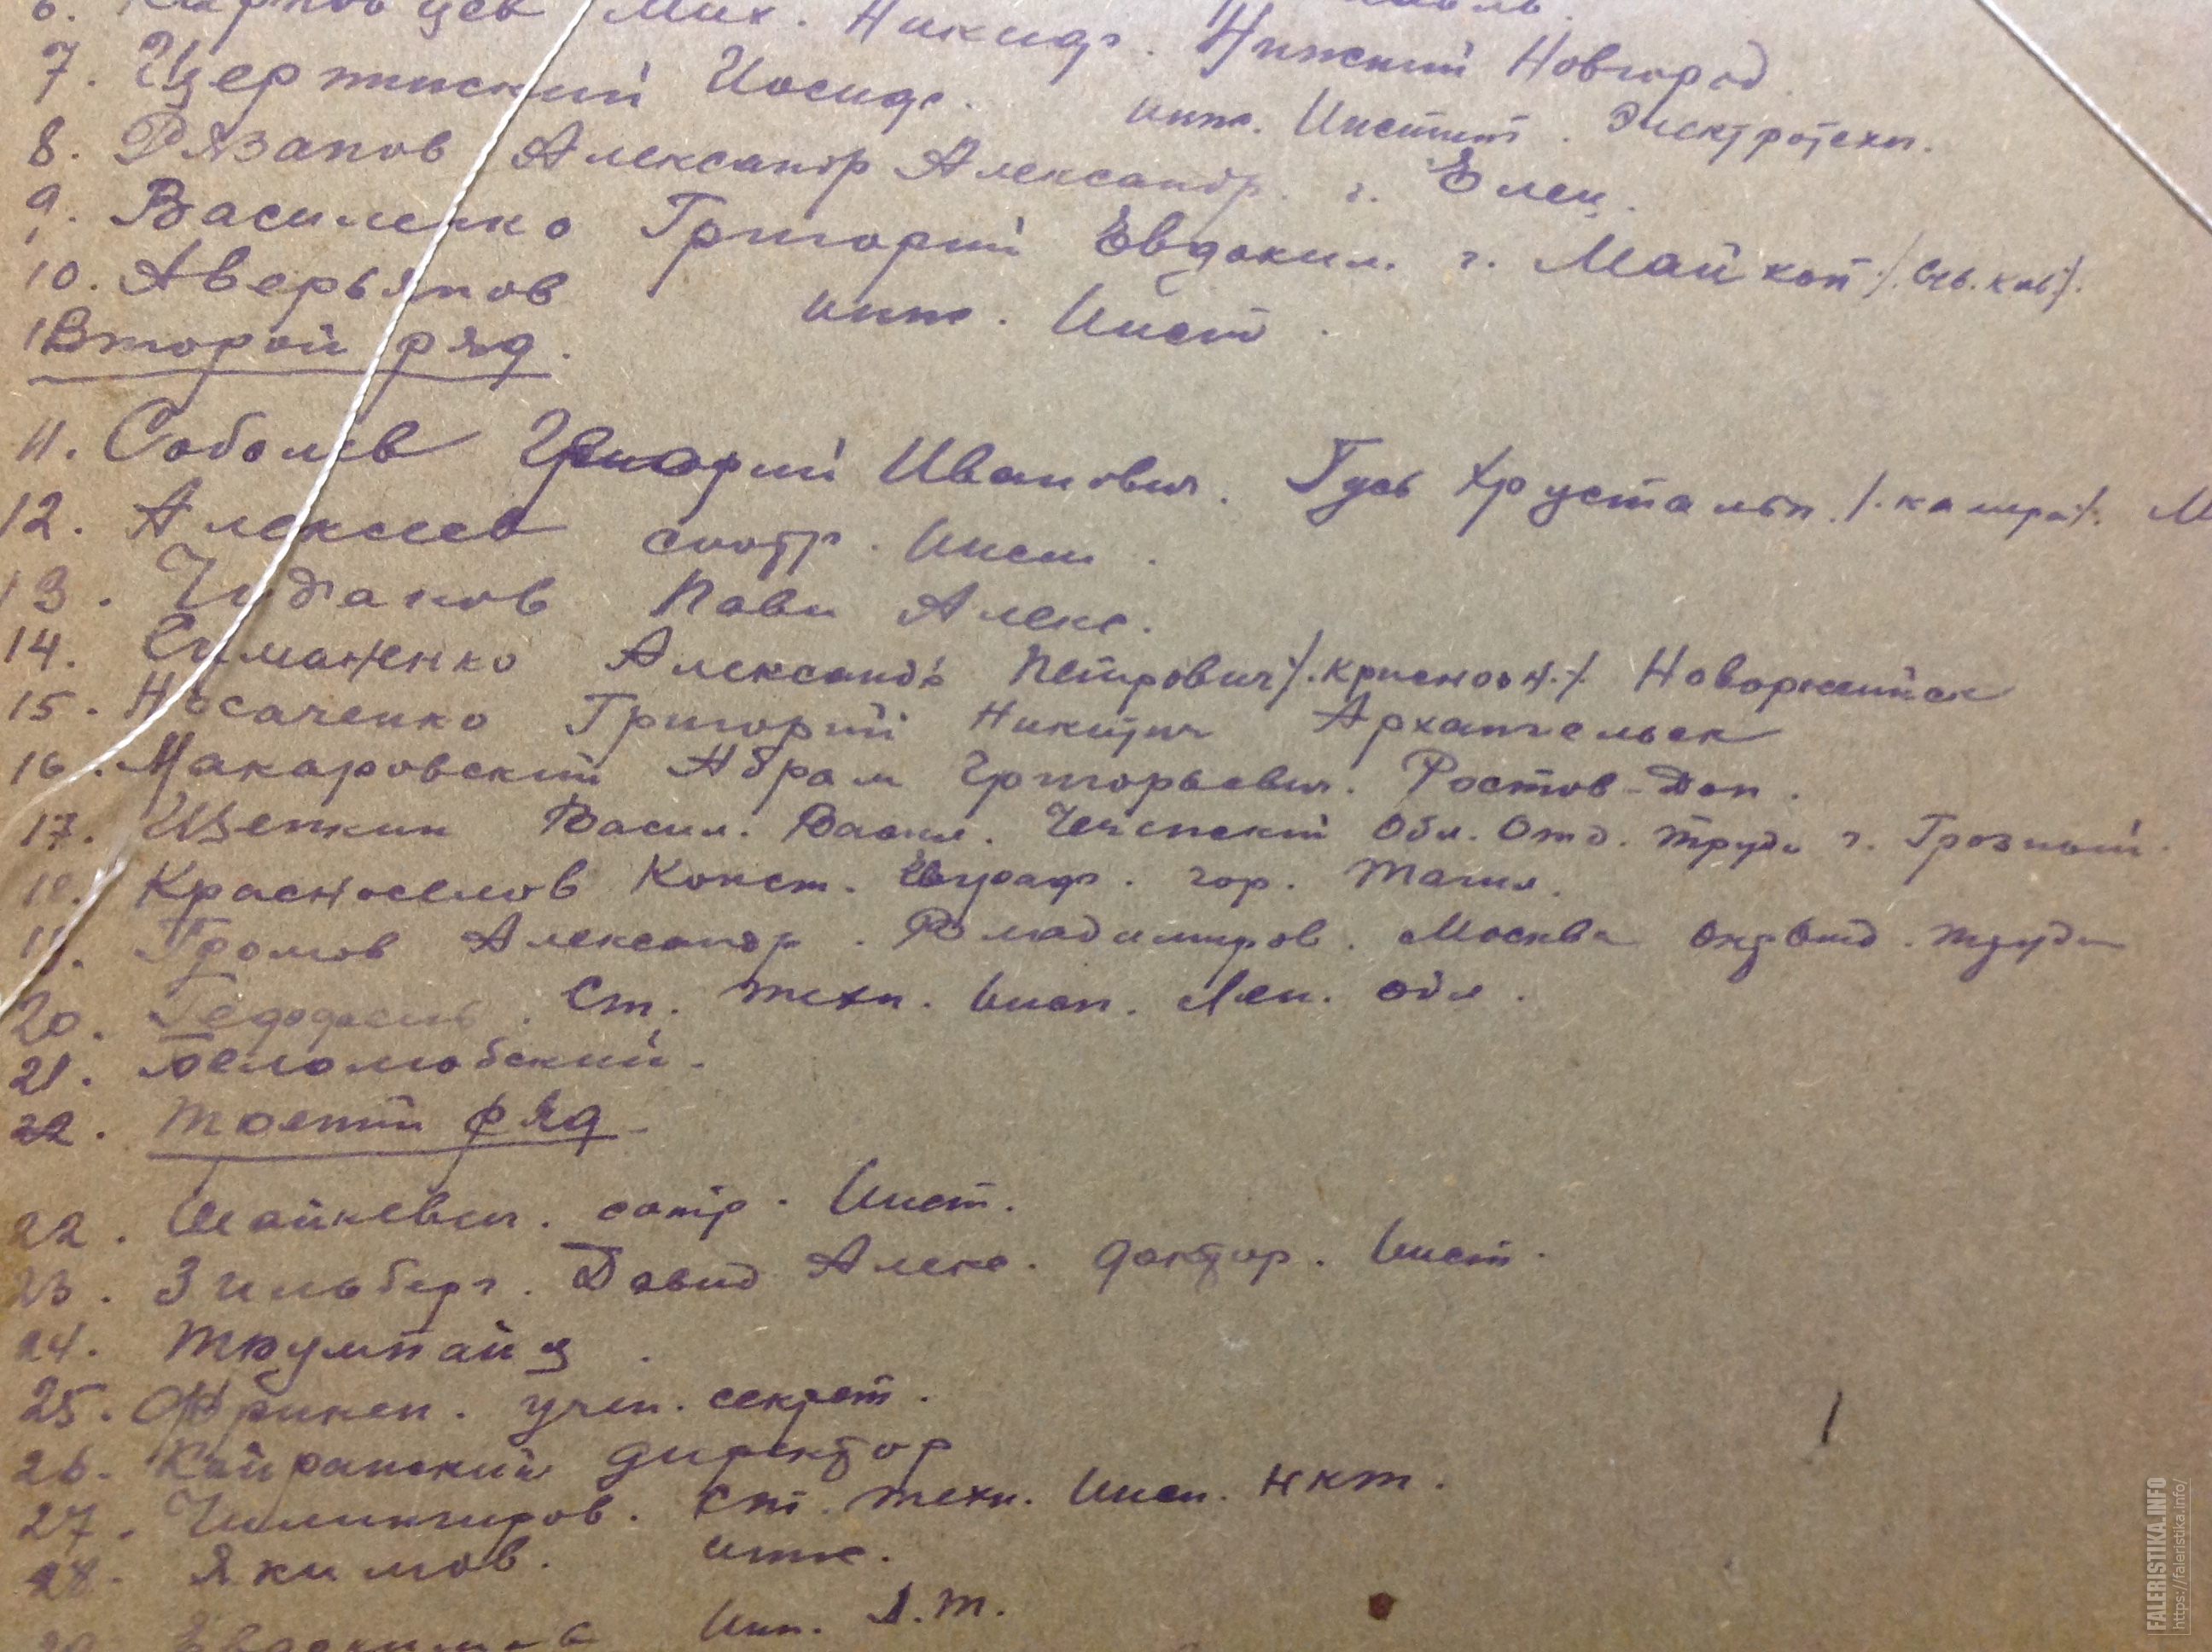 6. Мих. Никиф.
7. Цертинский Иосиф. Нижний Новгород
8. Рязанов Александр Александр. г. Елец.
инж. Инстит. Электротехн.
9. Василенко Григорий Евдоким. г. Майкоп /. Сев. кав/.
10. Аверьянов инж. Инст.
Второй ряд.
11. Соболев Григорий Иванович. Гусь Хрустальн. /. /. М
12. Алексеев сотр. Инст.
13. Чудаков Павл Алекс.
14. Симаненко Александр Петрович /. /. Новоржевск
15. Носаченко Григорий Никитич Архангельск
16. Макаровский Абрам Григорьевич. Ростов-Дон.
17. Щепкин Васил. Васил. Чеченский Обл. Отд. Труда г. Грозный.
18. Красноселов Конст. Евграф. гор. Тагил.
19. Громов Александр. Владимиров. Москва Окр Отд. Труда
20. Ст. техн. Инсп. Лен. Обл.
21. Белолюбский.
22. Третий ряд
22. Шайкевич. сотр. Инст.
23. Зильберг. Давид Алекс. доктор. Инст.
24. Трумпайц.
25. Фрикен. учен. секрет.
26. Кайранский директор
27. Чилингиров. Ст. техн. Инсп. НКТ.
28. Якимов. инж.
Инж.
FALERISTIKA.INFO
https://faleristika.info/